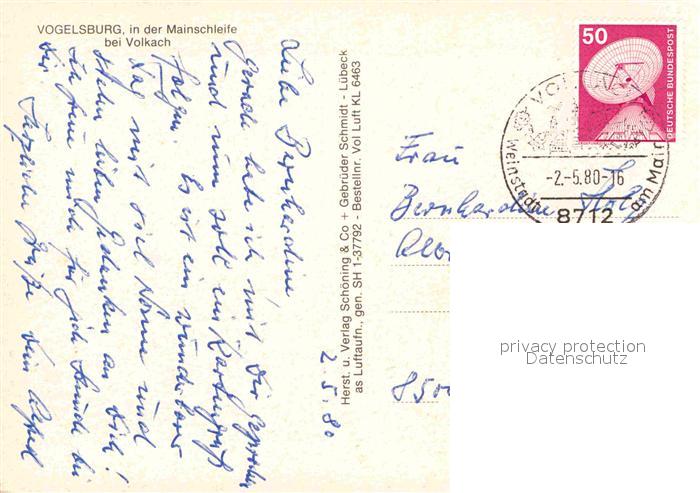 VOGELSBURG, in der Mainschleife
bei Volkach
2. 5. 80
Liebe Bernhardine
Gerade habe ich mit Dir gesprochen
und nun soll ein Kartengruß
folgen. Es ist ein wunderbarer
Tag mit viel Sonne und
vielen lieben Gedanken an Dich!
Ich freue mich für jede Stunde bei
Dir.
Herzliche Grüße Dein Alfred
Herst. u. Verlag Schöning & Co + Gebrüder Schmidt - Lübeck
as Luftaufn., gen. SH 1-37792 - Bestellnr. Vol Luft KL 6463
50
DEUTSCHE BUNDESPOST
VOLKACH
-2.-5.80-16
Weinstadt am Main
8712
Frau
Bernhardine
8500
privacy protection
Datenschutz